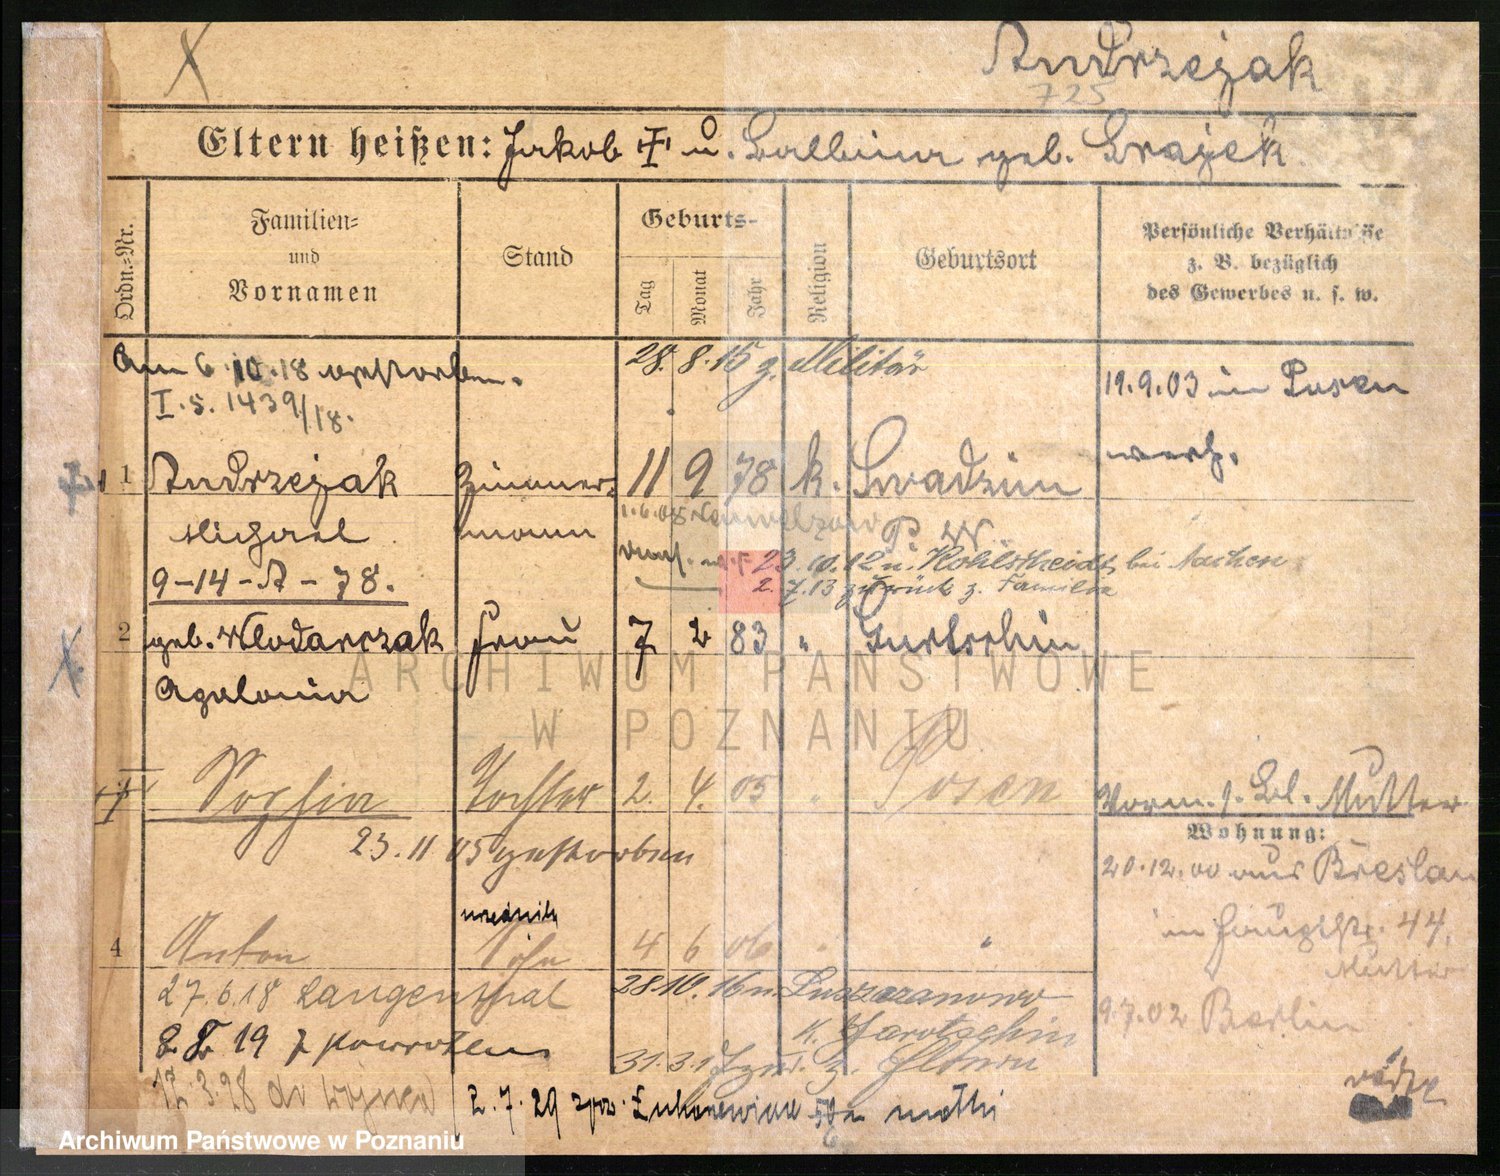 Andrzejak
725
Eltern heißen: Jakob u. Balbina geb. Grajek.
Ordn.-Nr.
Familien- und Vornamen
Stand
Geburts-
Tag
Monat
Jahr
Religion
Geburtsort
Persönliche Verhältnisse
z. B. bezüglich
des Gewerbes u. s. w.
Am 6.10.18 gestorben.
28. 8. 15 z. Militär
I. S. 1439/18.
19.9.03 in Posen
verh.
1 Andrzejak Zimmer- 11 9 78 k. Swadzim
Michael mann P. W.
verh. 23. 10. 12 n. Kohlscheidt bei Aachen
9-14-A-78. 2. 7. 13 zurück z. Familie
2 geb. Wlodarczak Frau 7 2 83 " Gurtschin
Apolonia
Sophia Tochter 2. 4. 05 " Posen
Mutter
23.11 05 gestorben
Wohnung:
20.12.00 aus Breslau
4 Anton Sohn 4 6 06 " "
44.
Mutter
27.6.18 Langenthal 28.10. 16 n.
K. Jarotschin
9.7.02 Berlin
19 z powrotem 31.3.17 z. Eltern
12.3.28 do wojska 2.7.29 matki
Archiwum Państwowe w Poznaniu
ARCHIWUM PAŃSTWOWE
W POZNANIU